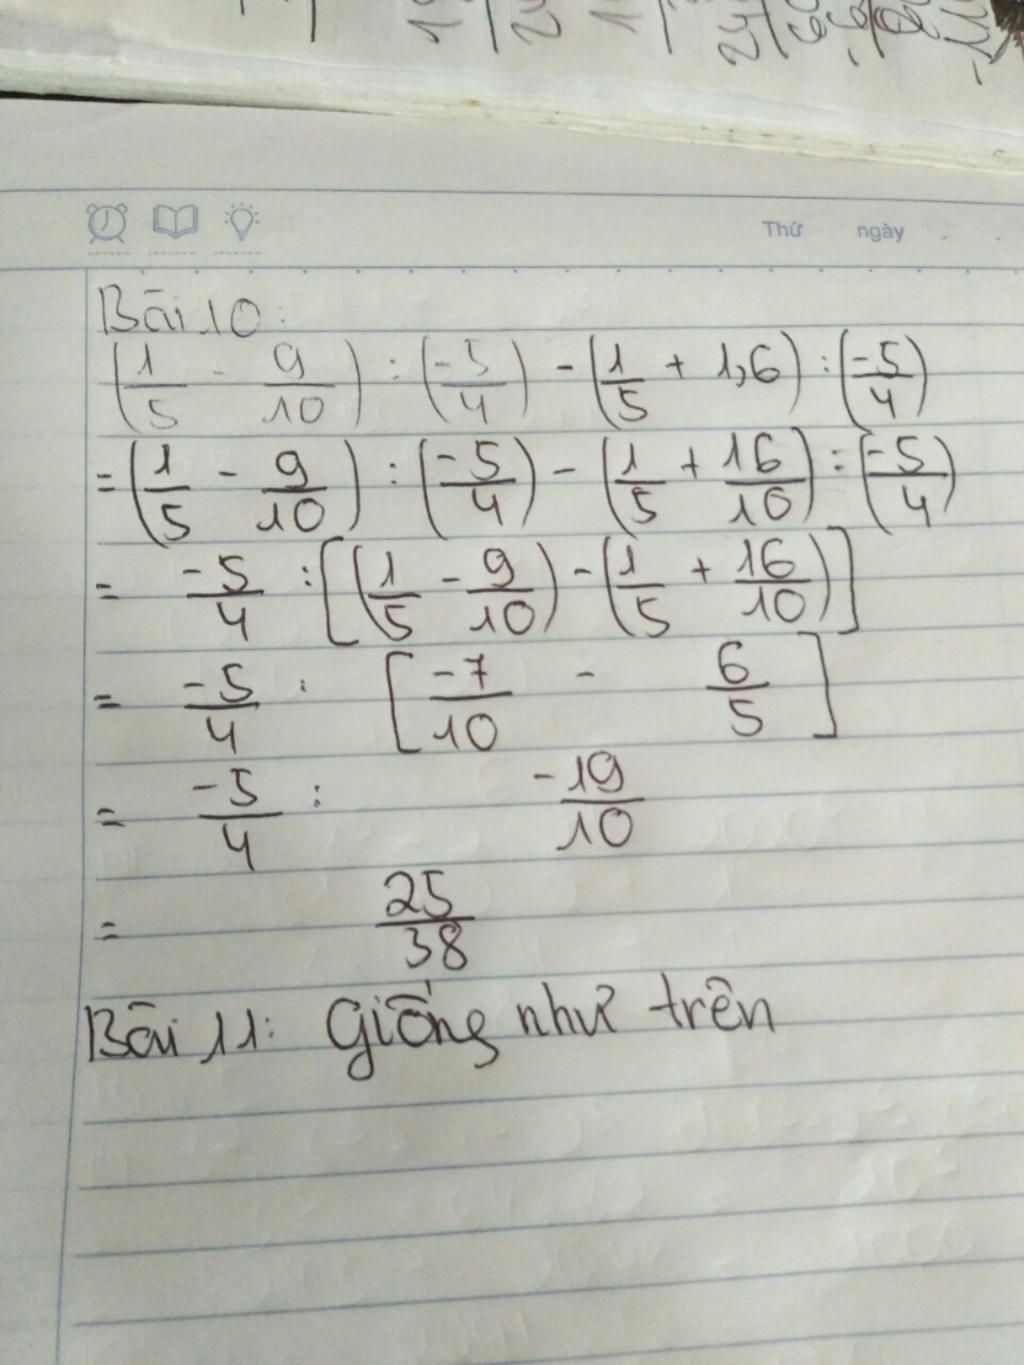 Thứ ngày
Bài 10:
(1/5 - 9/10) : (-5/4) - (1/5 + 1,6) : (-5/4)
= (1/5 - 9/10) : (-5/4) - (1/5 + 16/10) : (-5/4)
= -5/4 : [(1/5 - 9/10) - (1/5 + 16/10)]
= -5/4 : [-7/10 - 6/5]
= -5/4 : -19/10
= 25/38
Bài 11: Giống như trên